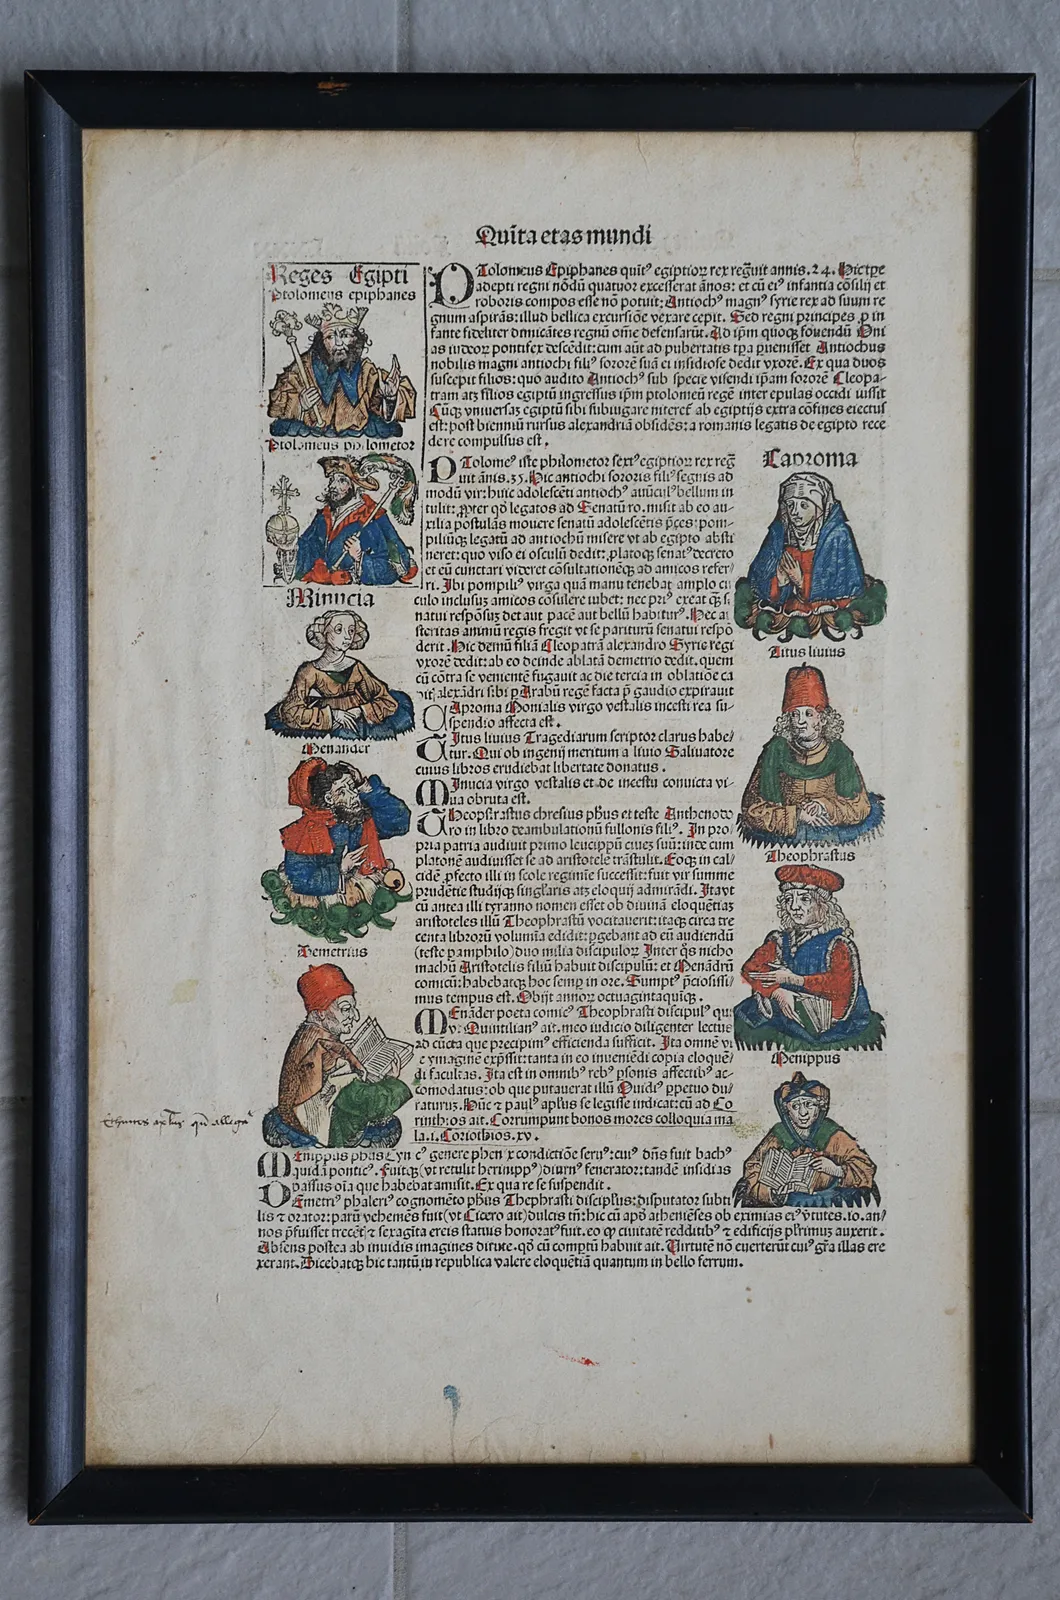 Quīta etas mundi
Reges Egipti
Ptolomeus epiphanes
Ptolomeus philometor
Minucia
Menander
Demetrius
Caproma
Titus livius
Theophrastus
Menippus
PTolomeus Epiphanes quītꝰ egiptioꝝ rex regnuit annis.24. Hic tpe
adepti regni nōdū quatuor excesserat ānos: et cū eiꝰ infantia cōsilij et
roboris compos esse nō potuit: Antiochꝰ magnꝰ syrie rex ad suum re
gnum aspirās: illud bellica excursiōe vexare cepit. Sed regni principes ꝓ in
fante fideliter dimicātes regnū om̄e defensarūt. Ad ip̄m quoqꝫ fouendū Oni
as iudeoꝝ pontifex descēdit: cum aūt ad pubertatis tp̄a ꝑuenisset Antiochus
nobilis magni antiochi filiꝰ sororē suā ei insidiose dedit vxorē. Ex qua duos
suscepit filios: quo audito Antiochꝰ sub specie visendi ip̄am sororē Cleopa-
tram atqꝫ filios egiptū ingressus ip̄m ptolomeū regē inter epulas occidi iussit
Cūqꝫ vniuersaꝫ egiptū sibi subiugare niteret̄ ab egiptijs extra cōfines eiectus
est: post bienniū rursus alexandriā obsidēs: a romanis legatis de egipto rece
dere compulsus est.
PTolomeꝰ iste philometor sextꝰ egiptioꝝ rex reg
uit ānis.35. Hic antiochi sororis filiꝰ segnis ad
modū vir: huic adolescēti antiochꝰ auūculꝰ bellum in
tulit: ꝓpter qd̄ legatos ad Senatū ro. misit ab eo au-
xilia postulās mouere senatū adolescētis p̄ces: pom-
piliūqꝫ legatū ad antiochū misere vt ab egipto absti
neret: quo viso ei osculū dedit: ꝓlatoqꝫ senatꝰ decreto
et eū cunctari videret cōsultationēqꝫ ad amicos refer
ri. Ibi pompiliꝰ virga quā manu tenebat amplo cir
culo inclusuꝫ amicos cōsulere iubet: nec priꝰ exeat qꝫ s
natui respōsuꝫ det aut pacē aut bellū habiturꝰ. Hec a
steritas animū regis fregit vt se pariturū senatui respō
derit. Hic demū filiā Cleopatrā alexandro Syrie regi
vxorē dedit: ab eo deinde ablatā demetrio dedit. quem
cū cōtra se venientē fugauit ac die tercia in oblatiōe ca
pit̄ alexādri sibi ꝑ Arabū regē facta p̄ gaudio expirauit
CAproma Monialis virgo vestalis incesti rea su-
spendio affecta est.
TItus liuius Tragediarum scriptor clarus habe
tur. Qui ob ingenij meritum a liuio Salinatore
cuius libros erudiebat libertate donatus.
MInucia virgo vestalis et de incestu conuicta vi-
ua obruta est.
THeopfrastus chresius ph̄us et teste Anthenodo
ro in libro deambulationū fullonis filiꝰ. In pro
pria patria audiuit primo leucippū ciueꝫ suū: inde cum
platonē audiuisset se ad aristotelē trāstulit. Eoqꝫ in cal
cidē ꝓfecto illi in scole regimīe successit: fuit vir summe
prudētie studijqꝫ singlaris atqꝫ eloquij admirādi. Itavt
cū antea illi tyranno nomen esset ob diuinā eloquētiaꝫ
aristoteles illū Theophrastū vocitauerit: itaqꝫ circa tre
centa librorū volumīa edidit: ꝑgebant ad eū audiendū
(teste pamphilo) duo milia discipuloꝝ. Inter q̄s nicho
machū Aristotelis filiū habuit discipulū: et Menādrū
comicū: habebatqꝫ hoc semꝑ in ore. Sumptꝰ p̄ciosissi
mus tempus est. Obijt annoꝝ octuagintaquīqꝫ.
MEnāder poeta comicꝰ Theophrasti discipulꝰ qu
vt Quintilianꝰ ait. meo iudicio diligenter lectus
ad cūcta que precipimꝰ efficienda sufficit. Ita omnē vi
te ymaginē exp̄ssit: tanta in eo inueniēdi copia eloquē
di facultas. Ita est in omnibꝰ rebꝰ ꝑsonis affectibꝰ ac-
comodatus: ob que putauerat illū Ouidiꝰ ꝑpetuo du
raturuꝫ. Hūc ⁊ paulꝰ ap̄lus se legisse indicat: cū ad Co
rinth: os ait. Corrumpunt bonos mores colloquia ma
la. i. Corinthios. xv.
MEnippus ph̄us Cynicꝰ genere phenix condiciōe seruꝰ: cuiꝰ dn̄s fuit bachꝰ
quidā ponticꝰ. Fuitqꝫ (vt retulit hermippꝰ) diurnꝰ fenerator: tandē insidias
passus oīa que habebat amisit. Ex qua re se suspendit.
DEmetriꝰ phalerꝰ cognomēto ph̄us Thephrasti discip̄lus: disputator subti
lis ⁊ orator: parū vehemēs fuit (vt Cicero ait) dulcis tn̄: hic cū apd̄ atheniēses ob eximias eiꝰ v̄tutes. io. an
nos p̄fuisset trecēt⁊ ⁊ sexagīta ereis status honoratꝰ fuit. eo ꝙ ciuitatē redditibꝰ ⁊ edificijs pl̄rimuꝫ auxerit.
Absens postea ab inuidis imagines dirute. qd̄ cū comꝑtū habuit ait. Virtutē nō euerterūt cuiꝰ gr̄a illas ere
xerant. Dicebatqꝫ hic tantū in republica valere eloquētiā quantum in bello ferrum.